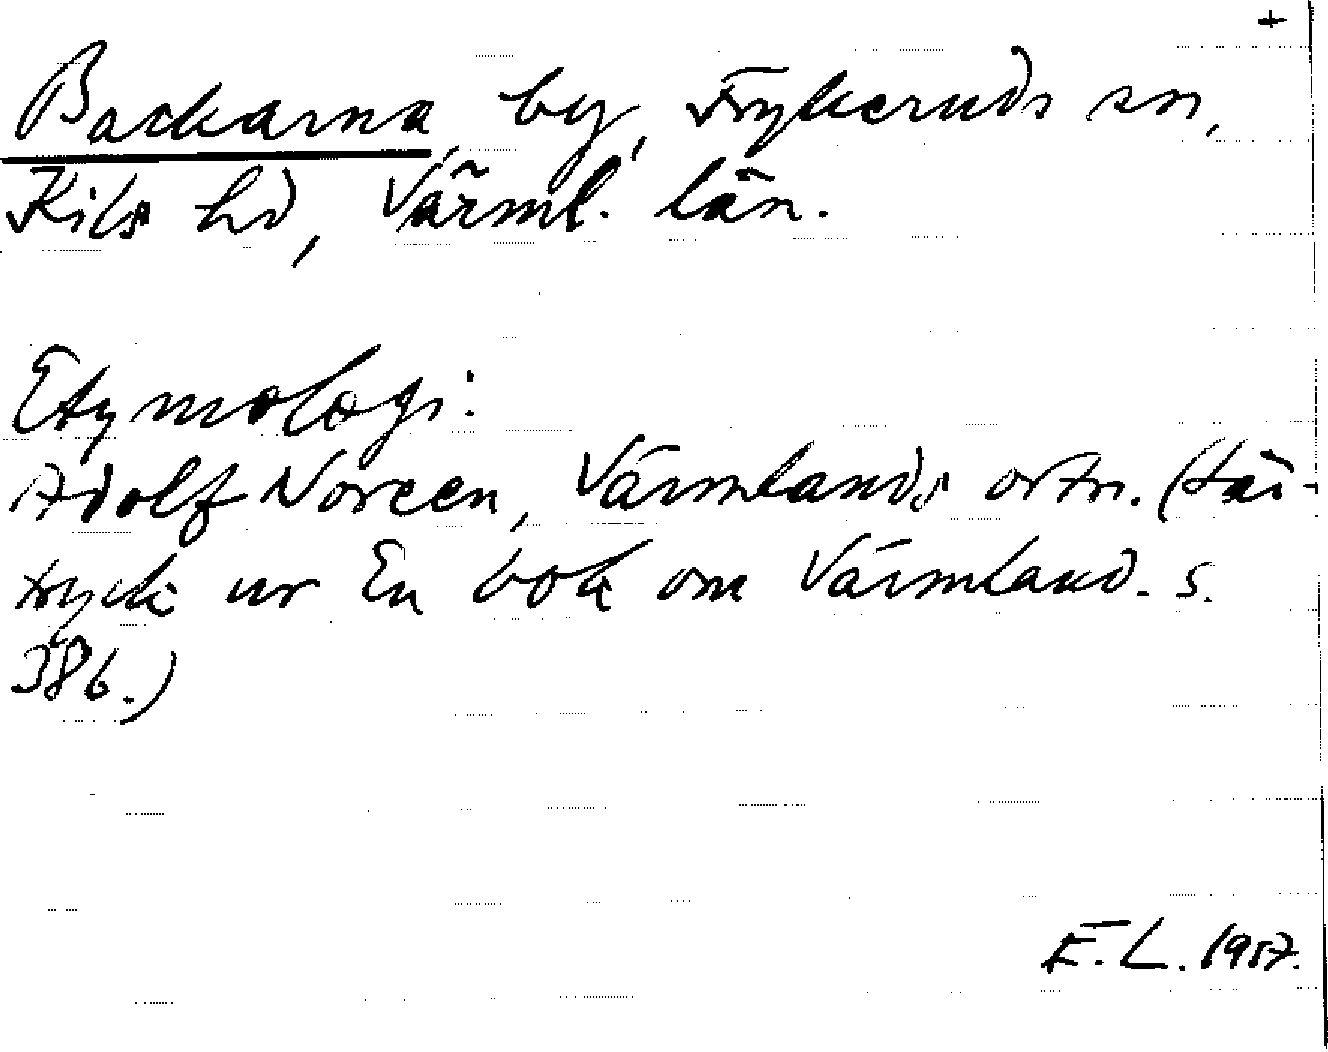 +
Backarna, by, Frykeruds sn,
Kils hd, Värml. län.
Etymologi:
Adolf Noreen, Värmlands ortn. (Sär-
tryck ur En bok om Värmland. s.
386.)
E. L. 1957.